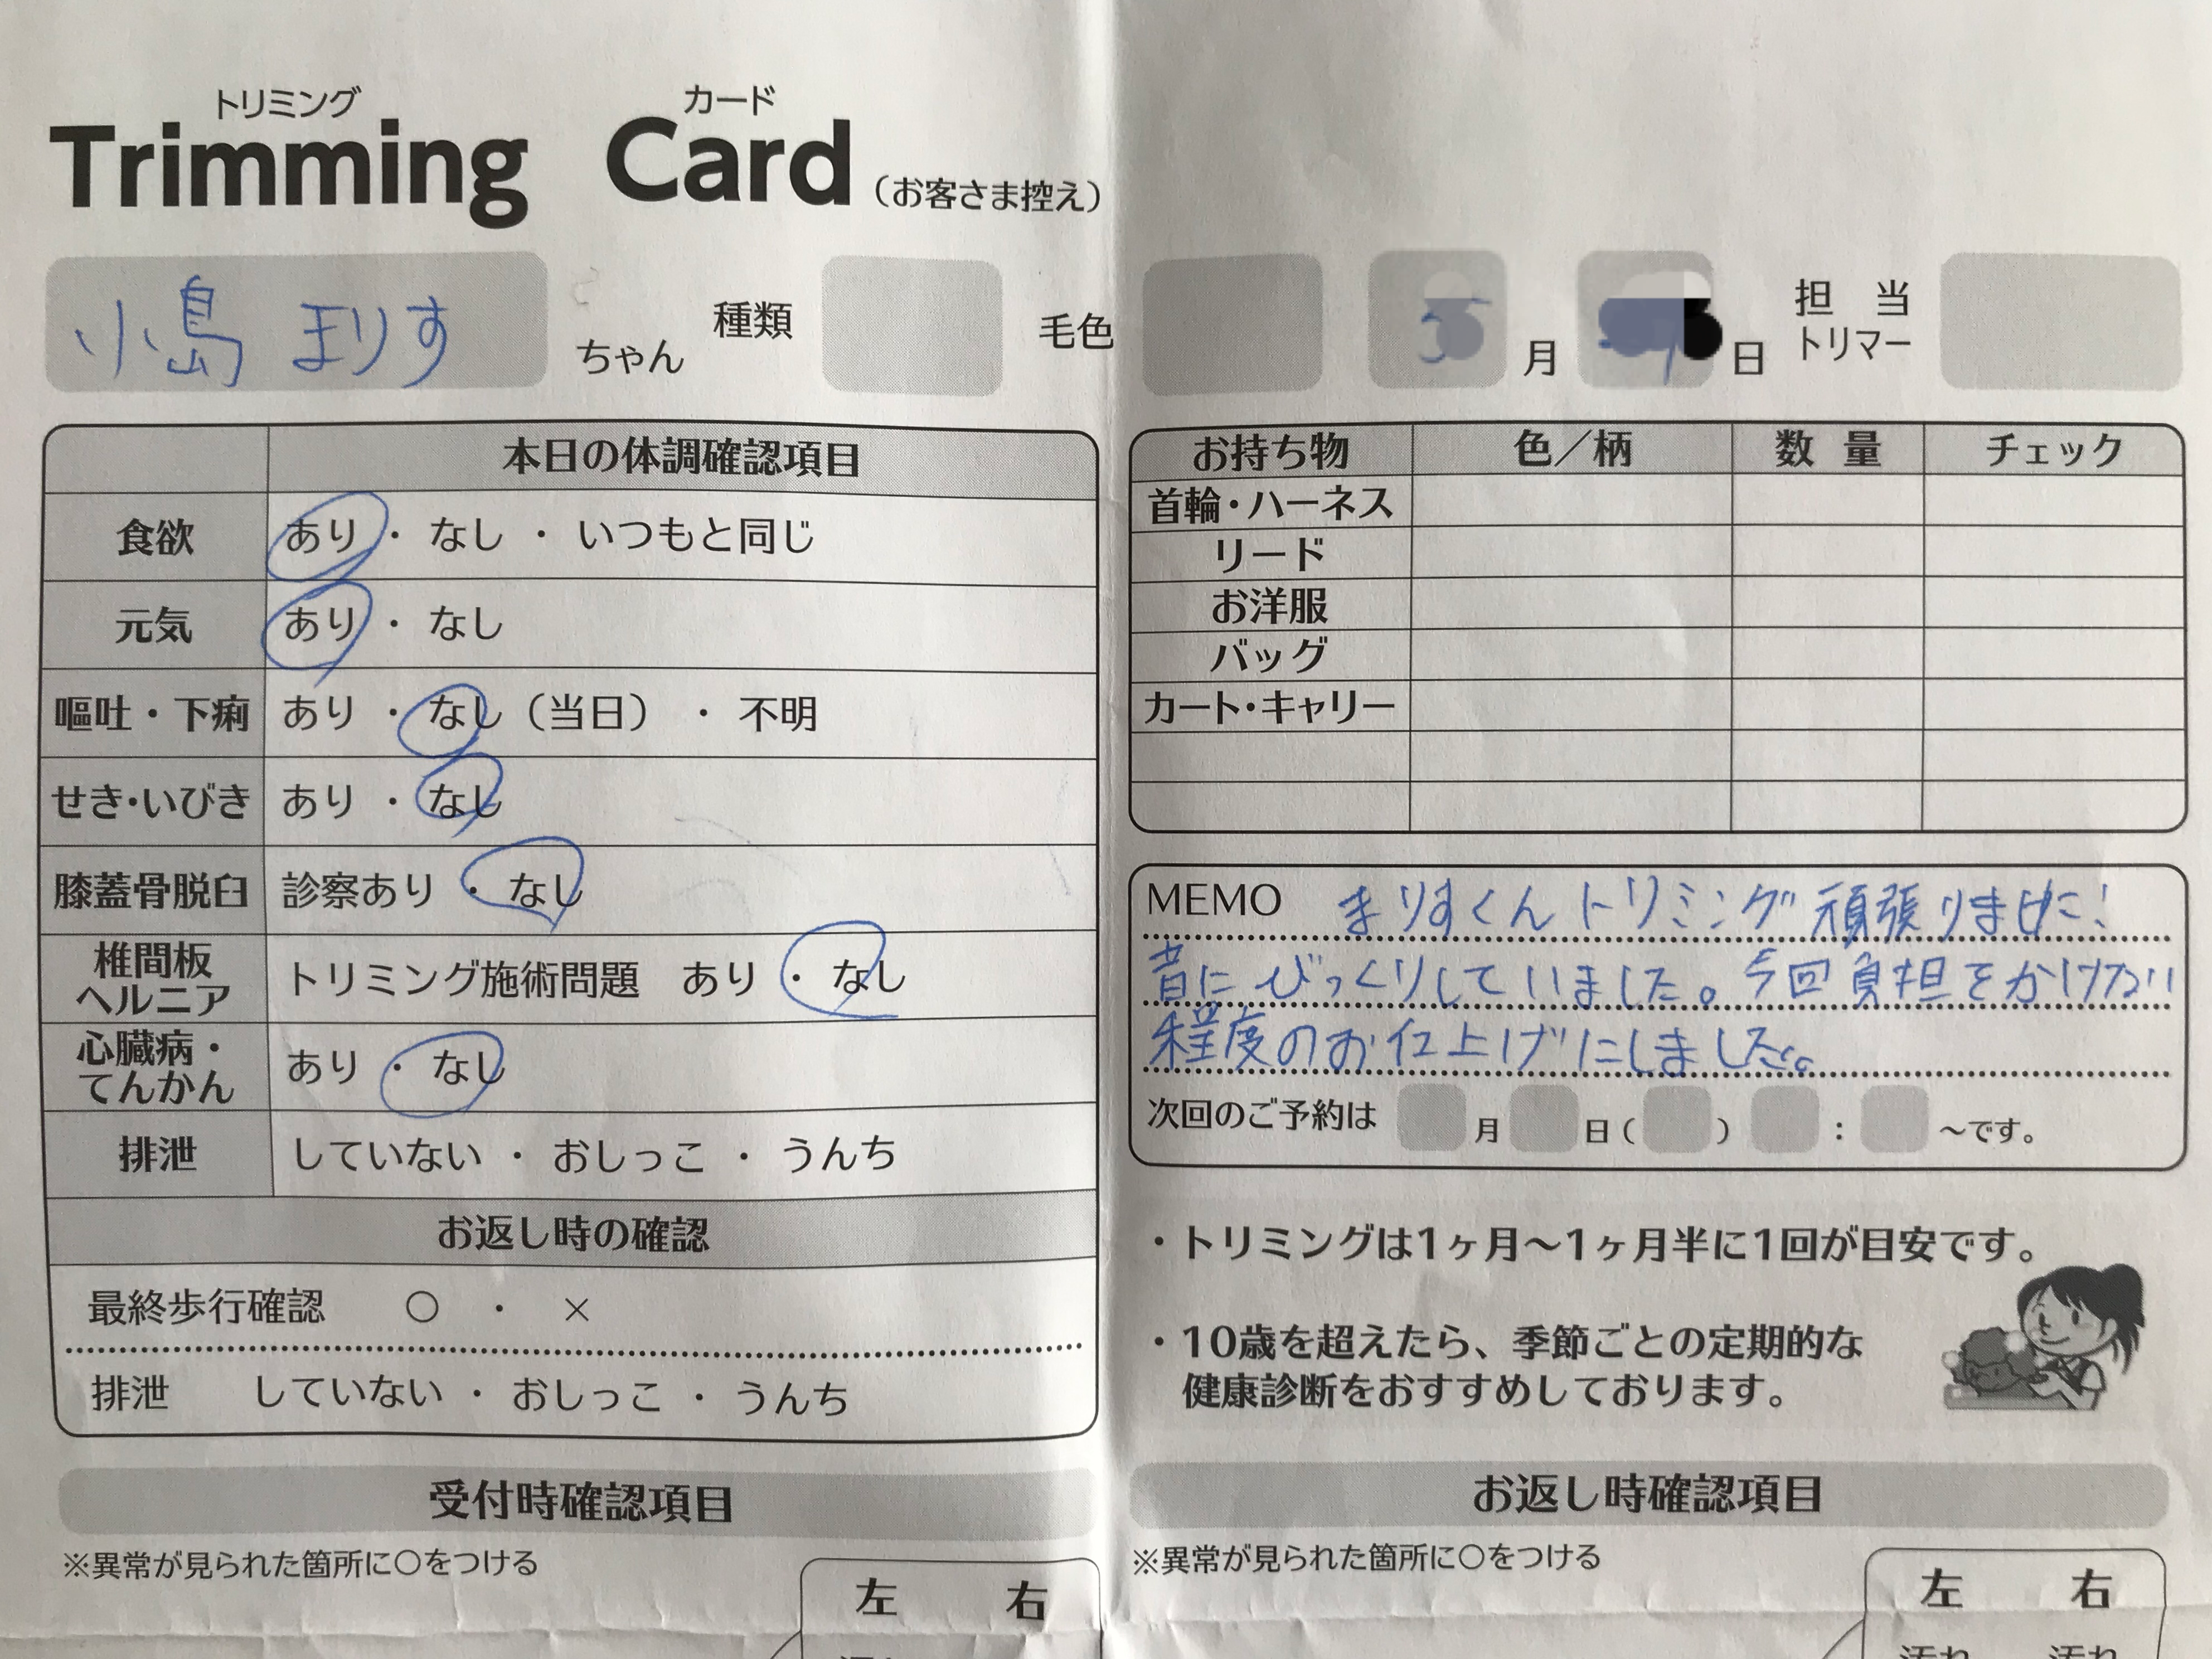 トリミング カード
Trimming Card (お客さま控え)
小島 まりす ちゃん 種類 毛色 月 日 担当トリマー
本日の体調確認項目
食欲 あり ・ なし ・ いつもと同じ
元気 あり ・ なし
嘔吐・下痢 あり ・ なし(当日) ・ 不明
せき・いびき あり ・ なし
膝蓋骨脱臼 診察あり ・ なし
椎間板ヘルニア トリミング施術問題 あり ・ なし
心臓病・てんかん あり ・ なし
排泄 していない ・ おしっこ ・ うんち
お返し時の確認
最終歩行確認 ○ ・ ×
排泄 していない ・ おしっこ ・ うんち
受付時確認項目
※異常が見られた箇所に○をつける
左 右
お持ち物 色/柄 数量 チェック
首輪・ハーネス
リード
お洋服
バッグ
カート・キャリー
MEMO まりすくんトリミング頑張りました!
音にびっくりしていました。今回負担をかけない
程度のお仕上げにしました。
次回のご予約は 月 日( ) : ~です。
・トリミングは1ヶ月~1ヶ月半に1回が目安です。
・10歳を超えたら、季節ごとの定期的な
健康診断をおすすめしております。
お返し時確認項目
※異常が見られた箇所に○をつける
左 右
汚れ 汚れ